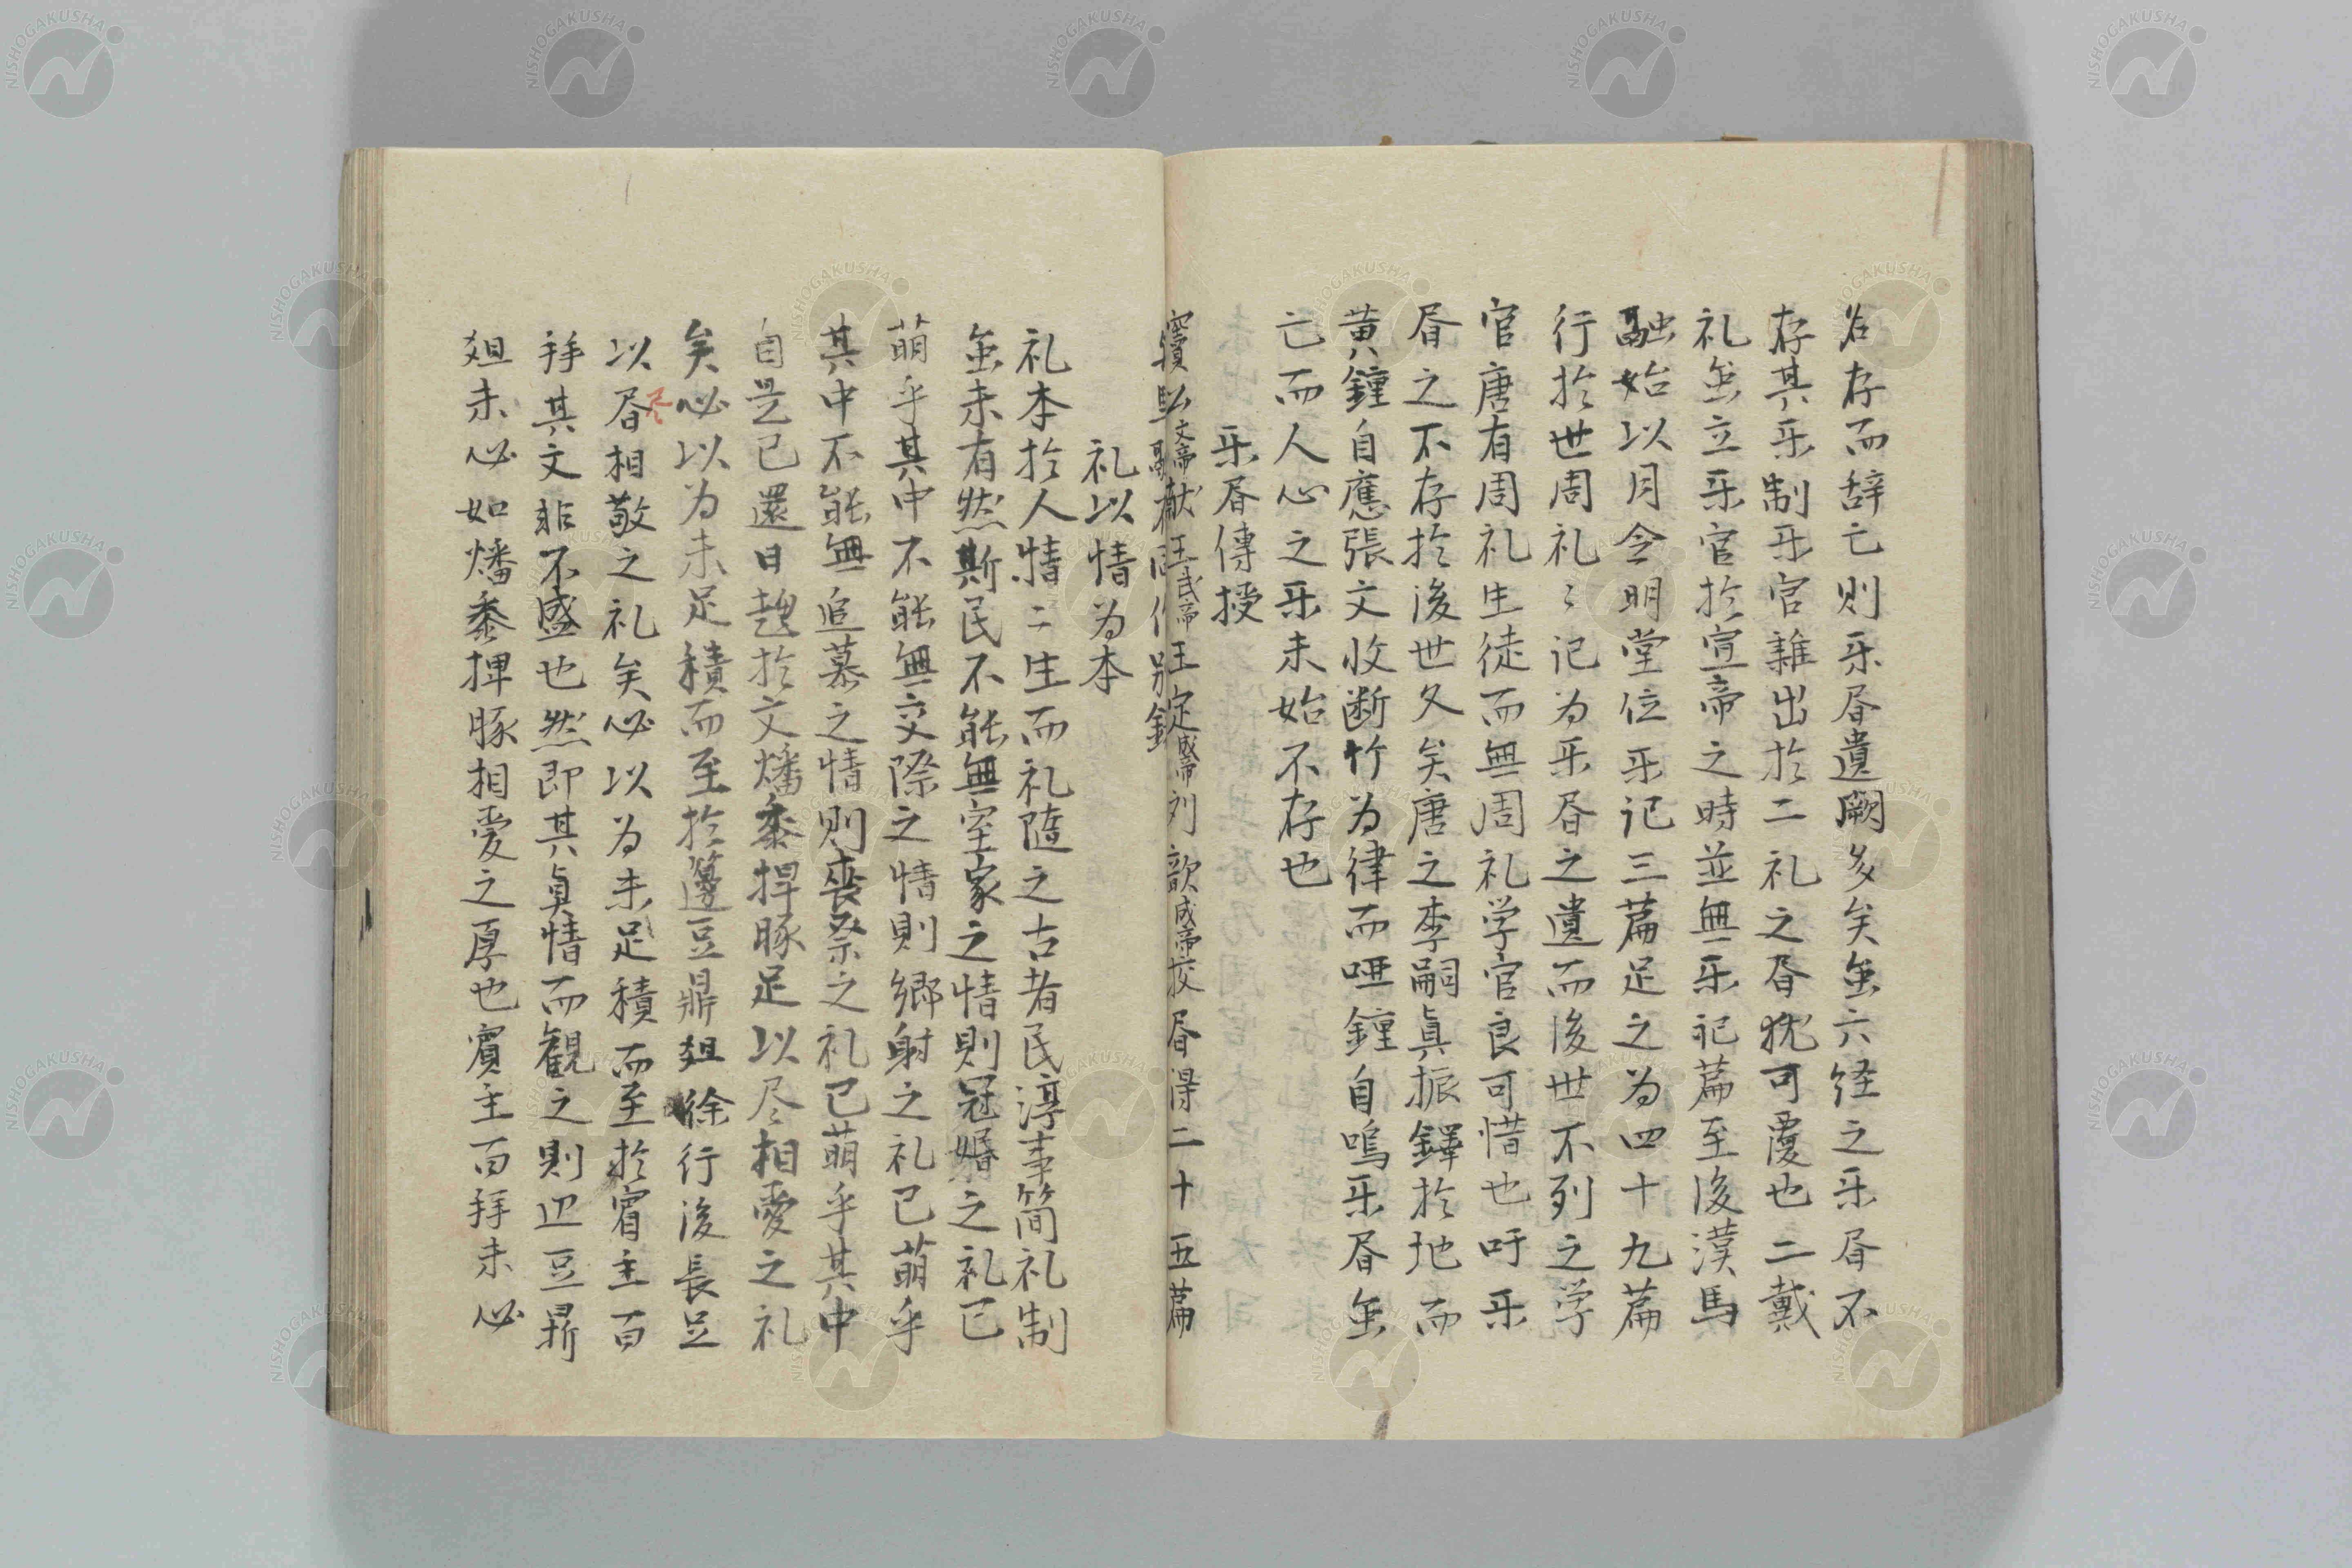 名存而辞亡則乐昏遺闕多矣虽六经之乐昏不
存其乐制乐官雜出於二礼之昏犹可覆也二戴
礼虽立乐官於宣帝之時並無乐记篇至後漢馬
融始以月令明堂位乐记三篇足之为四十九篇
行於世周礼礼记为乐昏之遺而後世不列之学
官唐有周礼生徒而無周礼学官良可惜也吁乐
昏之不存於後世久矣唐之李嗣真振鐸於地而
黄鐘自應張文收断竹为律而哑鐘自鳴乐昏虽
亡而人心之乐未始不存也
乐昏傳授
竇公文帝献王武帝王定成帝刘歆成帝校昏得二十五篇
礼以情为本
礼本於人情情生而礼随之古者民淳事简礼制
虽未有然斯民不能無室家之情則冠婚之礼已
萌乎其中不能無交際之情則鄉射之礼已萌乎
其中不能無追慕之情則喪祭之礼已萌乎其中
自是已還日趍於文燔黍捭豚足以尽相愛之礼
矣必以为未足積而至於籩豆鼎俎徐行後長足
以昏尽相敬之礼矣必以为未足積而至於賓主百
拜其文非不盛也然即其真情而観之則边豆鼎
俎未必如燔黍捭豚相愛之厚也賓主百拜未必
NISHOGAKUSHA